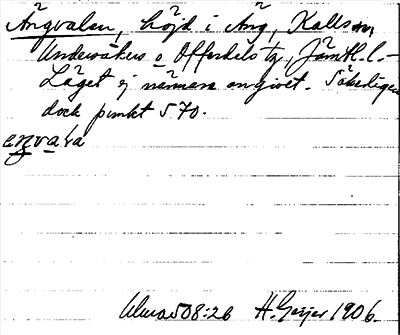 Ängvalen, höjd i Äng, Kalls sn,
Undersåkers o Offerdals tg, Jämtl. l. –
Läget ej närmare angivet. Säkerligen
dock punkt 570.
aŋvala
Ulma 508:26 H. Geijer 1906.